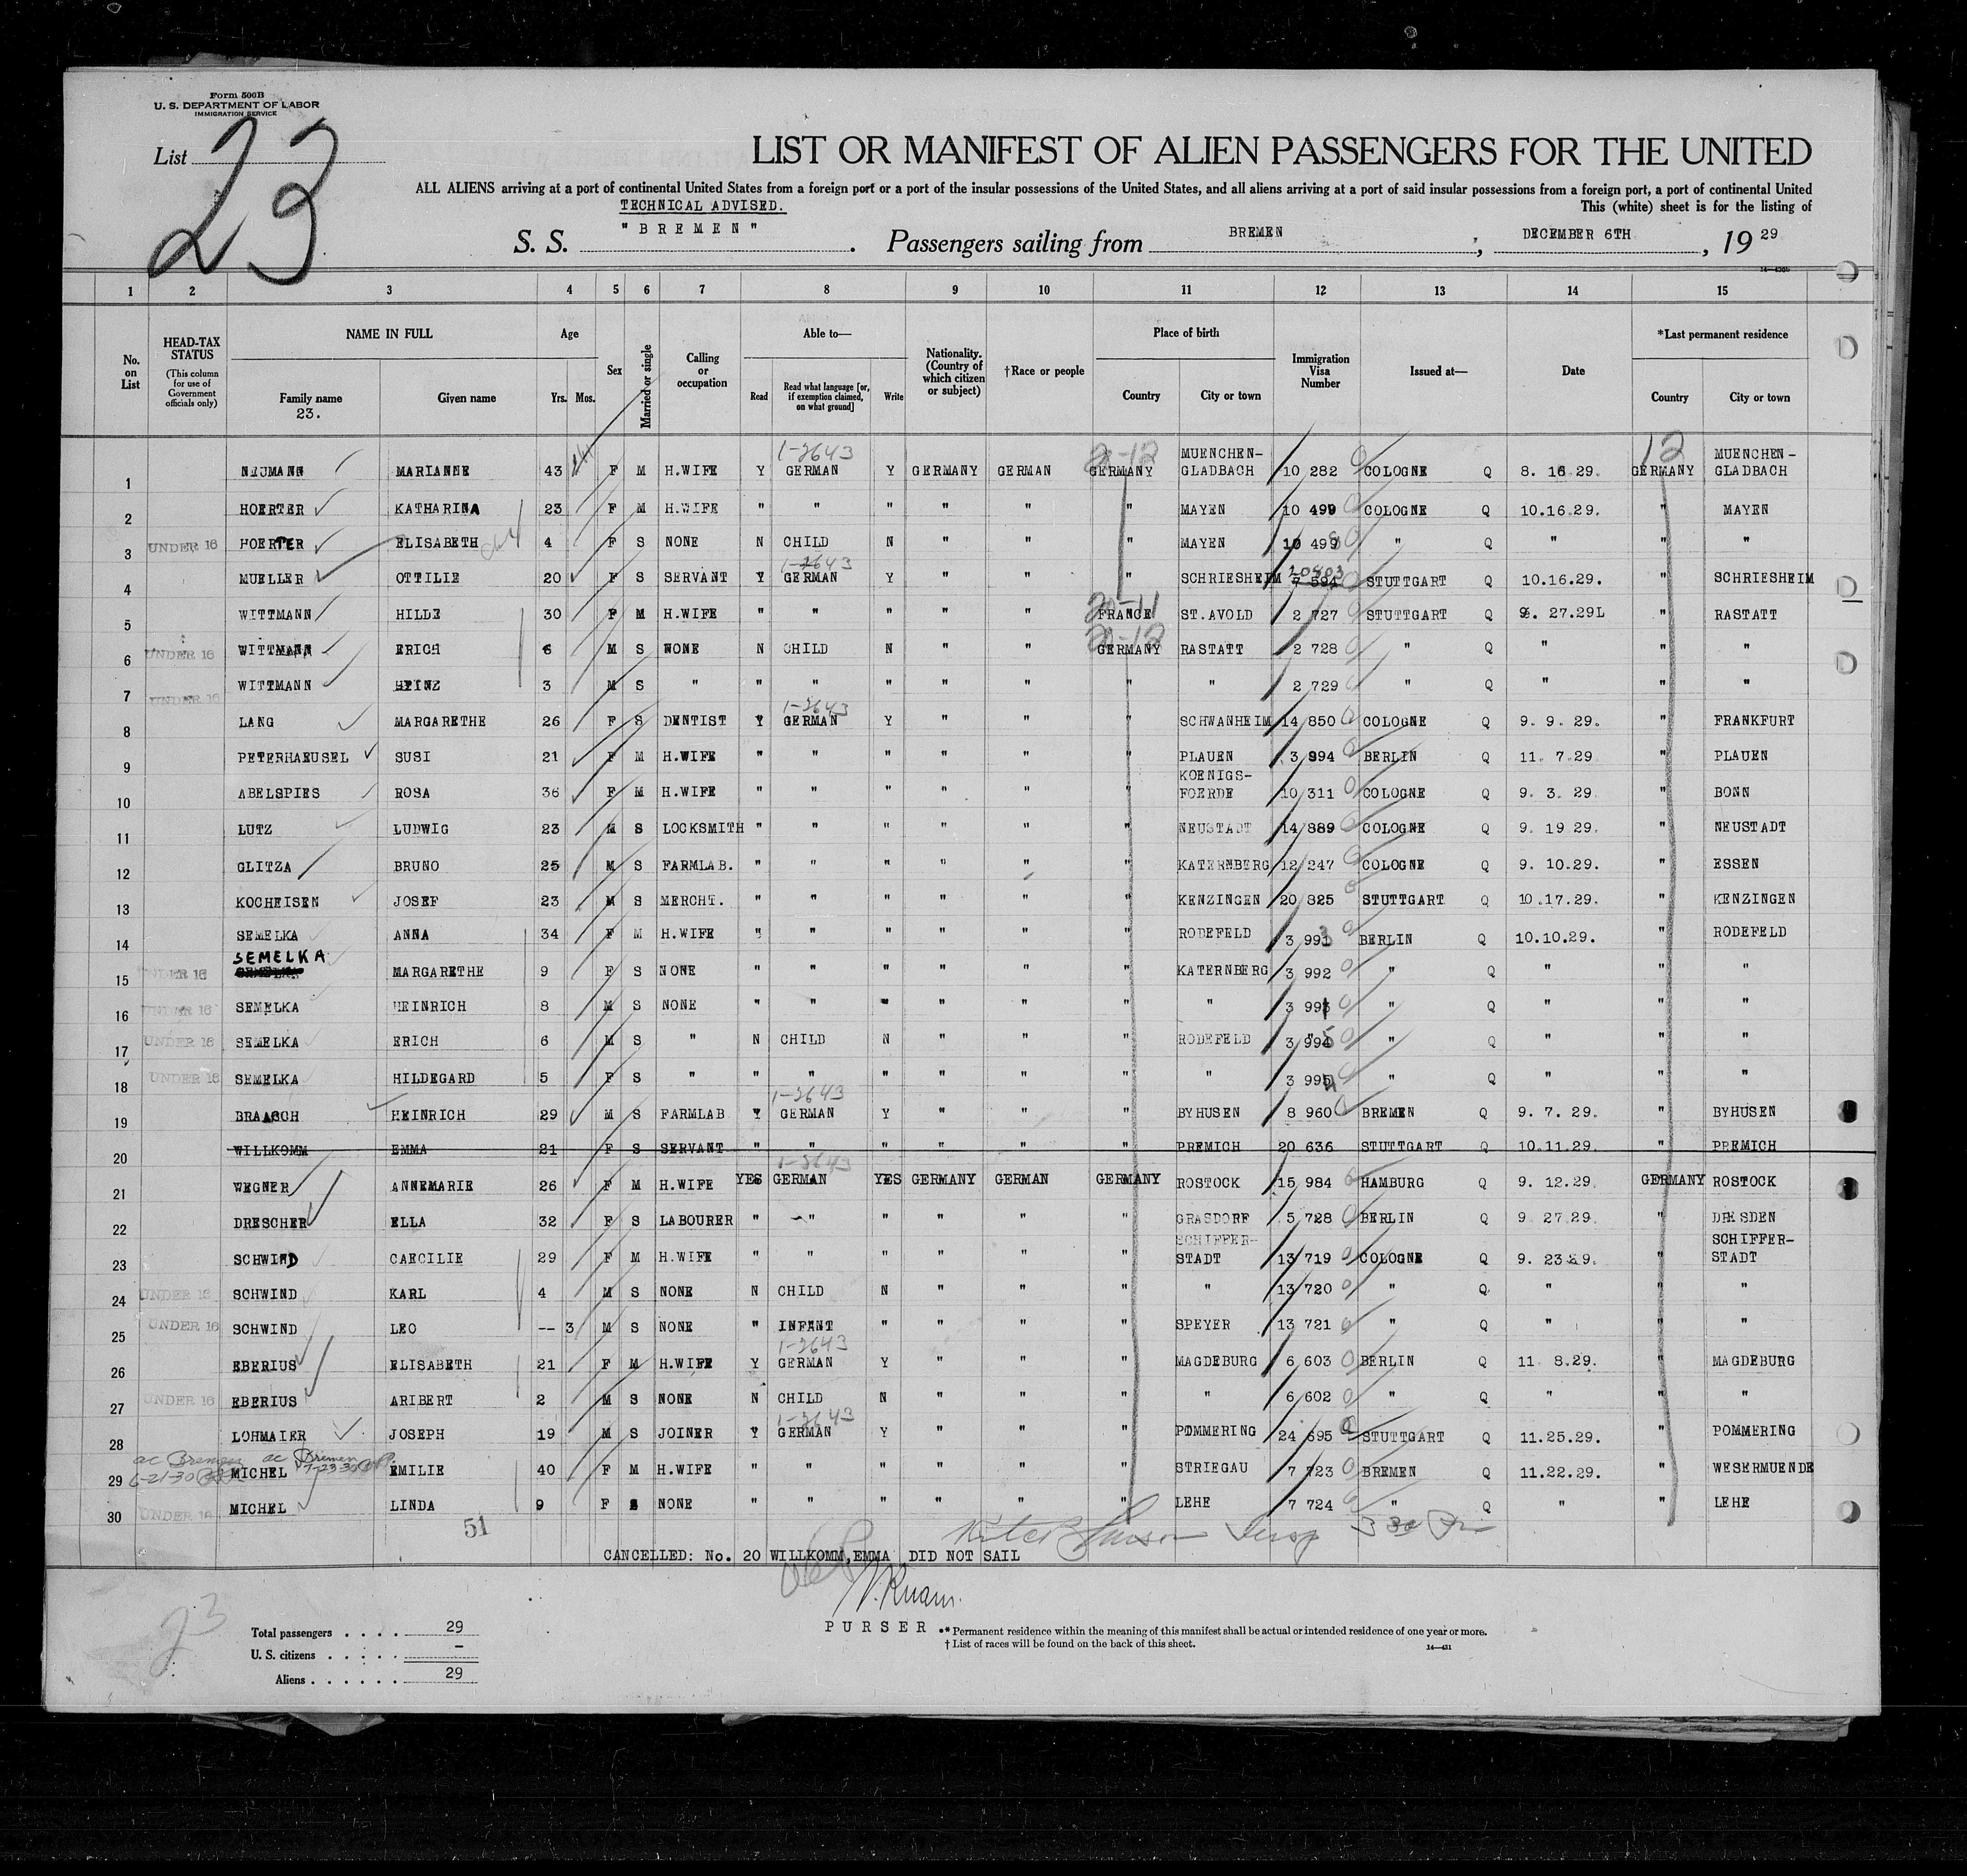 Form 500B
U. S. DEPARTMENT OF LABOR
IMMIGRATION SERVICE
List 23
LIST OR MANIFEST OF ALIEN PASSENGERS FOR THE UNITED
ALL ALIENS arriving at a port of continental United States from a foreign port or a port of the insular possessions of the United States, and all aliens arriving at a port of said insular possessions from a foreign port, a port of continental United
TECHNICAL ADVISED. This (white) sheet is for the listing of
S. S. "BREMEN". Passengers sailing from BREMEN, DECEMBER 6TH, 1929
1 2 3 4 5 6 7 8 9 10 11 12 13 14 15
No. on List
HEAD-TAX STATUS (This column for use of Government officials only)
NAME IN FULL Family name 23. Given name
Age Yrs. Mos.
Sex
Married or single
Calling or occupation
Able to— Read Read what language [or, if exemption claimed, on what ground] Write
Nationality. (Country of which citizen or subject)
†Race or people
Place of birth Country City or town
Immigration Visa Number
Issued at—
Date
*Last permanent residence Country City or town
1-2643 20-12 MUENCHEN- 12 MUENCHEN-
1 NEUMANN MARIANNE 43 F M H.WIFE Y GERMAN Y GERMANY GERMAN GERMANY GLADBACH 10 282 COLOGNE Q 8. 16.29. GERMANY GLADBACH
2 HOERTER KATHARINA 23 F M H.WIFE " " " " " " MAYEN 10 499 COLOGNE Q 10.16.29. " MAYEN
3 UNDER 16 HOERTER ELISABETH 4 F S NONE N CHILD N " " " MAYEN 10 498 " Q " " "
1-2643 10403
4 MUELLER OTTILIE 20 F S SERVANT Y GERMAN Y " " " SCHRIESHEIM 7 594 STUTTGART Q 10.16.29. " SCHRIESHEIM
20-11
5 WITTMANN HILDE 30 F M H.WIFE " " " " " FRANCE ST.AVOLD 2 727 STUTTGART Q 9. 27.29L " RASTATT
20-12
6 UNDER 16 WITTMANN ERICH 6 M S NONE N CHILD N " " GERMANY RASTATT 2 728 " Q " " "
7 UNDER 16 WITTMANN HEINZ 3 M S " " " " " " " " 2 729 " Q " " "
1-2643
8 LANG MARGARETHE 26 F S DENTIST Y GERMAN Y " " " SCHWANHEIM 14 850 COLOGNE Q 9. 9. 29. " FRANKFURT
9 PETERHAEUSEL SUSI 21 F M H.WIFE " " " " " " PLAUEN 3 994 BERLIN Q 11. 7.29 " PLAUEN
KOENIGS-
10 ABELSPIES ROSA 36 F M H.WIFE " " " " " " FOERDE 10 311 COLOGNE Q 9. 3. 29. " BONN
11 LUTZ LUDWIG 23 M S LOCKSMITH " " " " " " NEUSTADT 14 889 COLOGNE Q 9. 19 29. " NEUSTADT
12 GLITZA BRUNO 25 M S FARMLAB. " " " " " " KATERNBERG 12 247 COLOGNE Q 9. 10.29. " ESSEN
13 KOCHEISEN JOSEF 23 M S MERCHT. " " " " " " KENZINGEN 20 825 STUTTGART Q 10.17.29. " KENZINGEN
14 SEMELKA ANNA 34 F M H.WIFE " " " " " " RODEFELD 3 991 BERLIN Q 10.10.29. " RODEFELD
15 UNDER 16 SEMELKA MARGARETHE 9 F S NONE " " " " " " KATERNBERG 3 992 " Q " " "
16 UNDER 16 SEMELKA HEINRICH 8 M S NONE " " " " " " " 3 993 " Q " " "
17 UNDER 16 SEMELKA ERICH 6 M S " N CHILD N " " " RODEFELD 3 994 5 " Q " " "
18 UNDER 16 SEMELKA HILDEGARD 5 F S " " " " " " " " 3 995 4 " Q " " "
1-2643
19 BRAASCH HEINRICH 29 M S FARMLAB Y GERMAN Y " " " BYHUSEN 8 960 BREMEN Q 9. 7. 29. " BYHUSEN
20 WILLKOMM EMMA 21 F S SERVANT " " " " " " PREMICH 20 636 STUTTGART Q 10.11.29. " PREMICH
1-2643
21 WEGNER ANNEMARIE 26 F M H.WIFE YES GERMAN YES GERMANY GERMAN GERMANY ROSTOCK 15 984 HAMBURG Q 9. 12.29. GERMANY ROSTOCK
22 DRESCHER ELLA 32 F S LABOURER " " " " " " GRASDORF 5 728 BERLIN Q 9 27.29. " DRESDEN
SCHIFFER- SCHIFFER-
23 SCHWIND CAECILIE 29 F M H.WIFE " " " " " " STADT 13 719 COLOGNE Q 9. 23.29. " STADT
24 UNDER 16 SCHWIND KARL 4 M S NONE N CHILD N " " " " 13 720 " Q " " "
25 UNDER 16 SCHWIND LEO -- 3 M S NONE " INFANT " " " " SPEYER 13 721 " Q " " "
1-2643
26 EBERIUS ELISABETH 21 F M H.WIFE Y GERMAN Y " " " MAGDEBURG 6 603 BERLIN Q 11 8.29. " MAGDEBURG
27 UNDER 16 EBERIUS ARIBERT 2 M S NONE N CHILD N " " " " 6 602 " Q " " "
1-2643
28 LOHMAIER JOSEPH 19 M S JOINER Y GERMAN Y " " " POMMERING 24 695 STUTTGART Q 11.25.29. " POMMERING
ac Bremen ac Bremen
6-21-30 7-23-30
29 MICHEL EMILIE 40 F M H.WIFE " " " " " " STRIEGAU 7 723 BREMEN Q 11.22.29. " WESERMUENDE
30 UNDER 16 MICHEL LINDA 9 F S NONE " " " " " " LEHE 7 724 " Q " " LEHE
51
CANCELLED: No. 20 WILLKOMM,EMMA DID NOT SAIL
23
PURSER
Total passengers . . . . 29
U. S. citizens . . . . . –
Aliens . . . . . . 29
* Permanent residence within the meaning of this manifest shall be actual or intended residence of one year or more.
† List of races will be found on the back of this sheet.
14—431